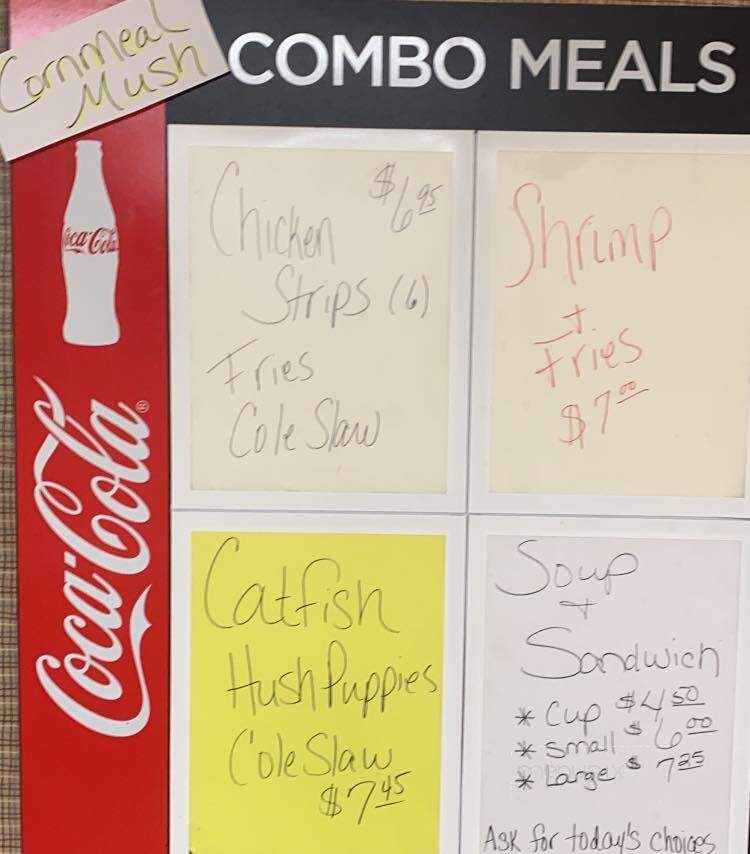 Cornmeal
Mush
COMBO MEALS
Coca-Cola
Coca-Cola®
Chicken $6.95
Strips (6)
Fries
Cole Slaw
Shrimp
+
Fries
$7.00
Catfish
Hush Puppies
Cole Slaw
$7.45
Soup
+
Sandwich
* Cup $4.50
* Small $6.00
* Large $7.25
Ask for today's choices